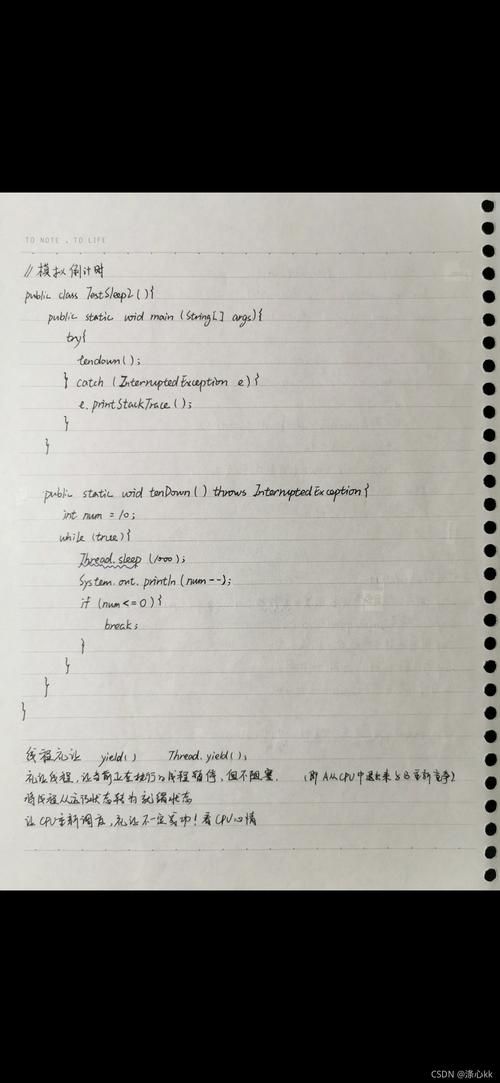 TO NOTE . TO LIFE
// 模拟倒计时
public class TestSleep2(){
public static void main (String[] args){
try{
tendown();
} catch (InterruptedException e){
e.printStackTrace();
}
}
public static void tenDown() throws InterruptedException{
int num = 10;
while (true){
Thread.sleep (1000);
System.out.println(num--);
if (num<=0){
break;
}
}
}
}
线程礼让 yield() Thread.yield();
礼让线程,让当前正在执行的线程暂停,但不阻塞. (即 A从CPU中退出来与B重新竞争)
将线程从运行状态转为就绪状态
让CPU重新调度,礼让不一定成功!看CPU心情
CSDN @涤心kk